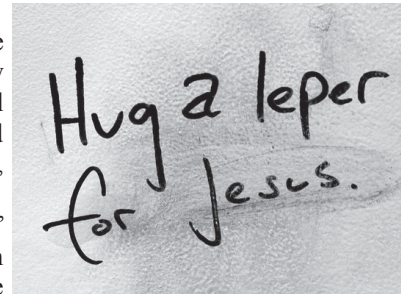 Hug a leper
for Jesus.